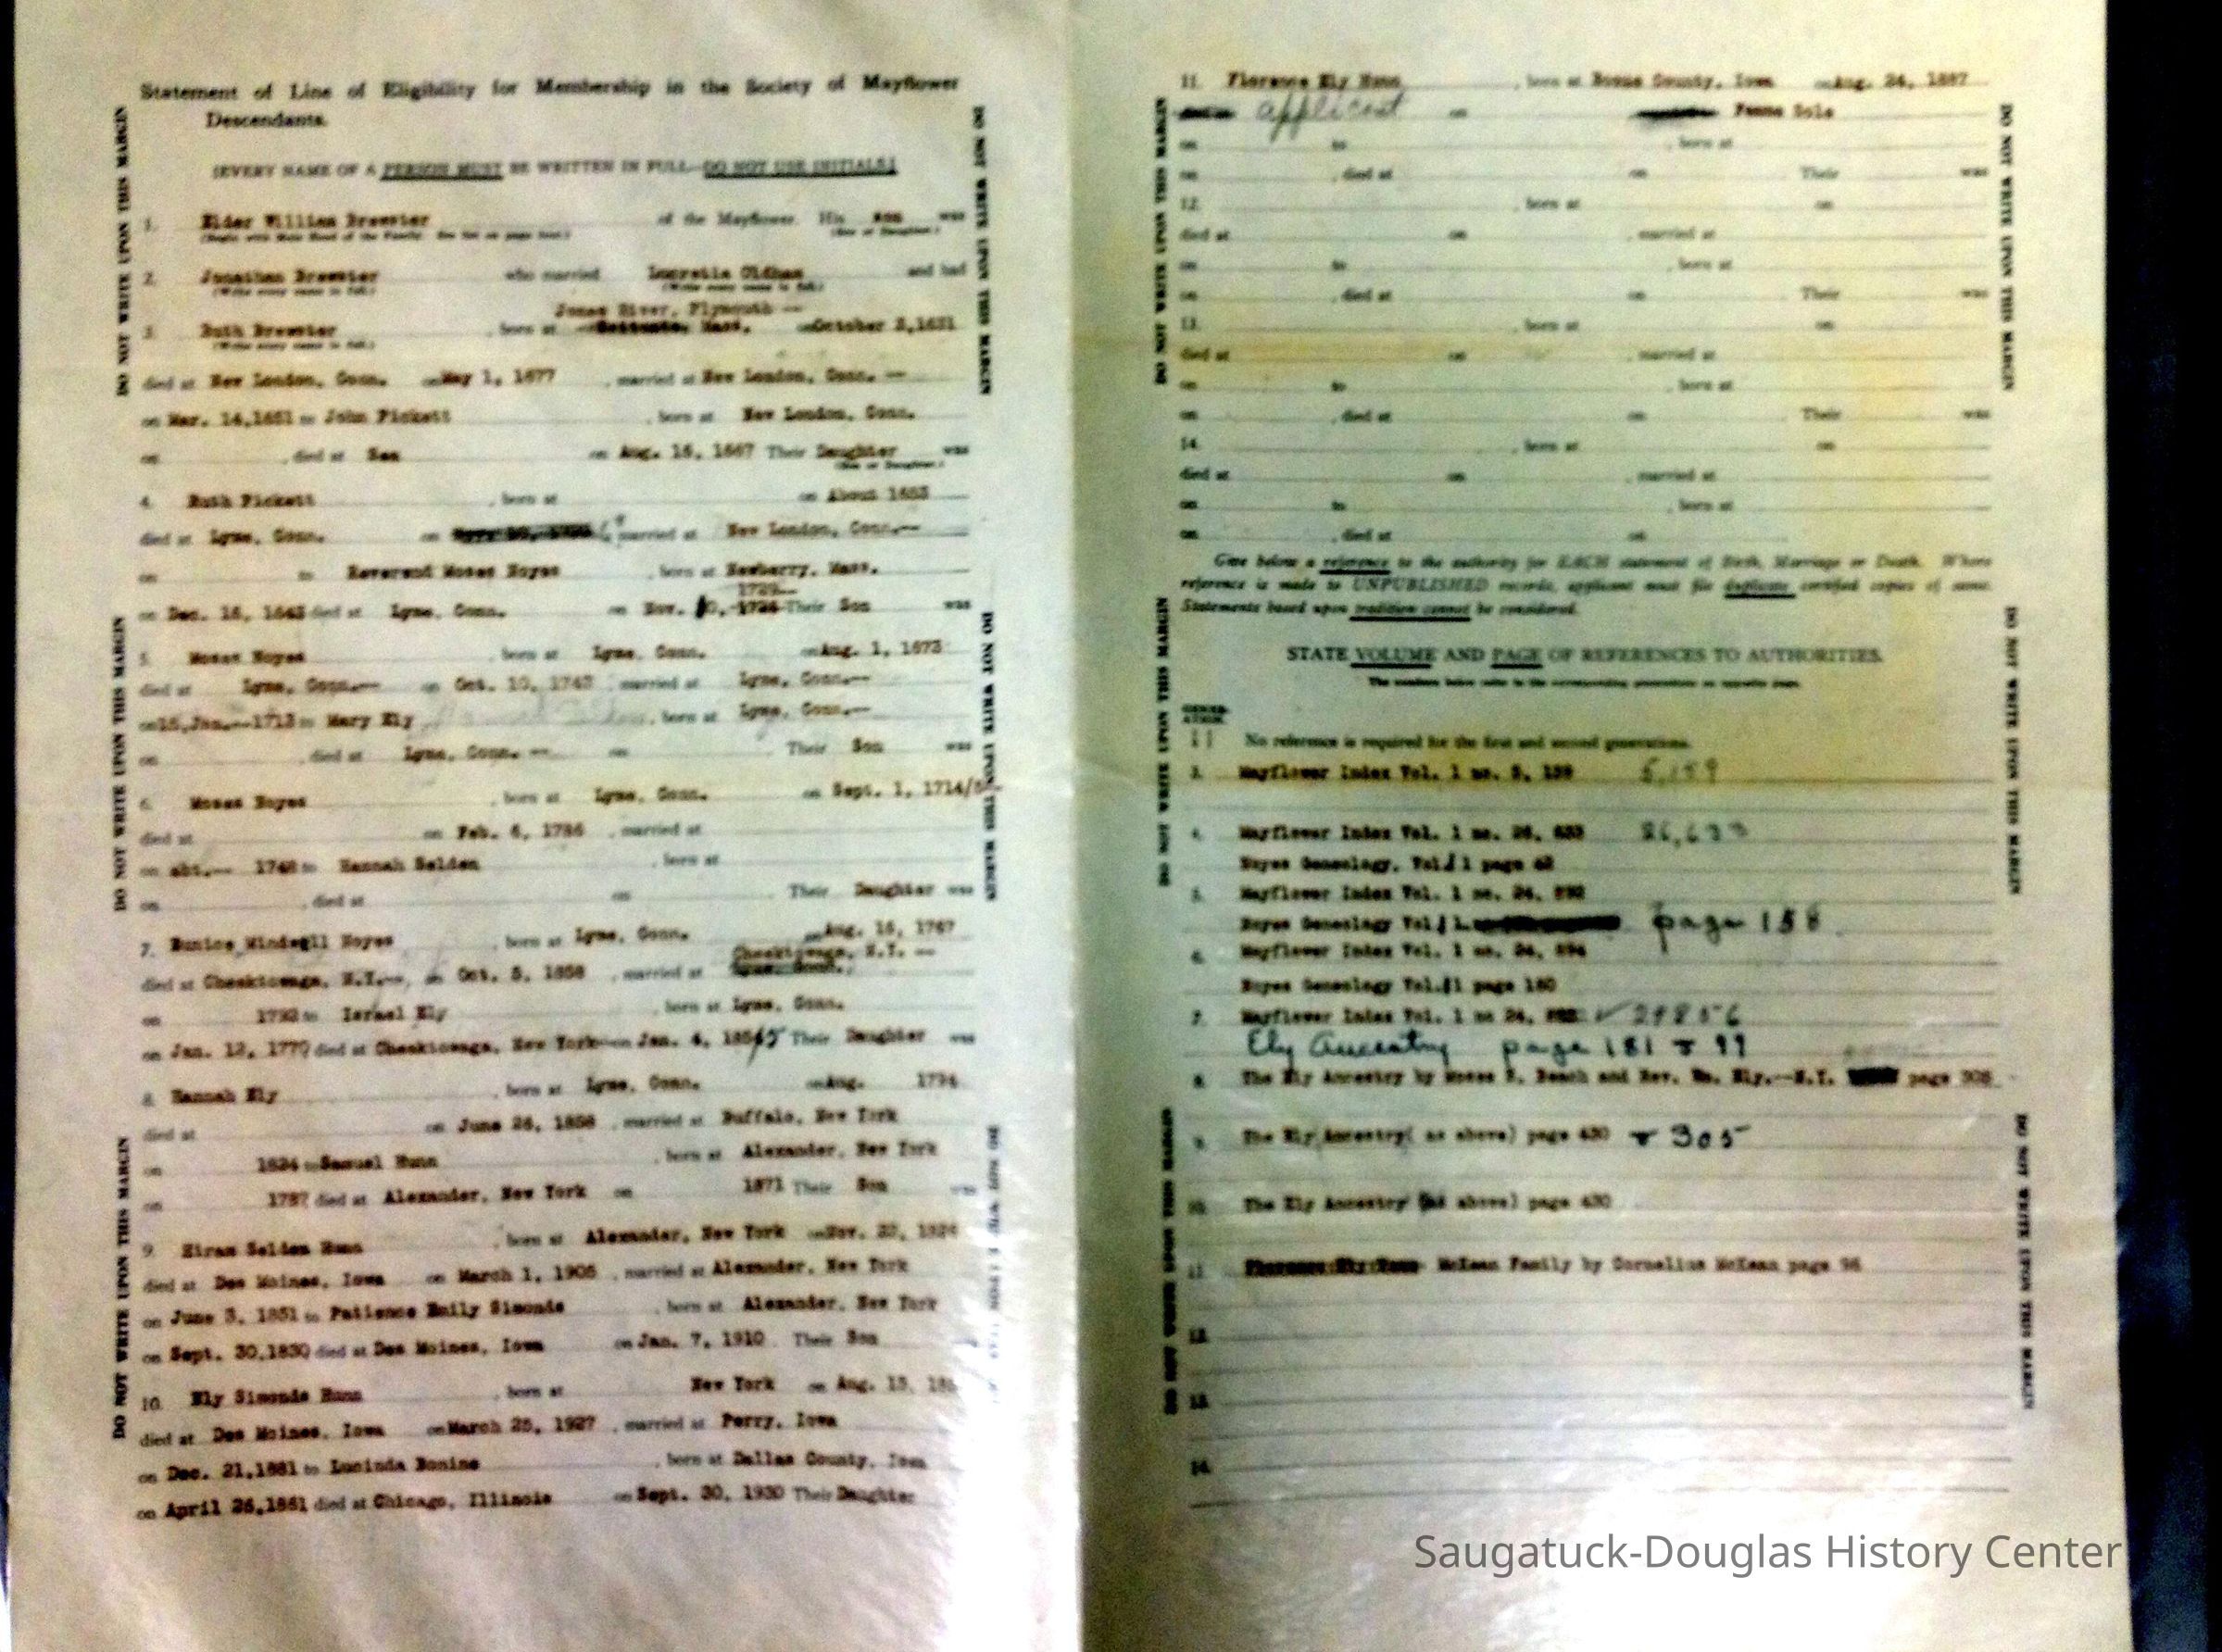 Statement of Line of Eligibility for Membership in the Society of Mayflower
Descendants.
(EVERY NAME OF A PERSON MUST BE WRITTEN IN FULL—DO NOT USE INITIALS.)
DO NOT WRITE UPON THIS MARGIN
1. Elder William Brewster of the Mayflower. His son was
2. Jonathan Brewster who married Lucretia Oldham and had
(Write every name in full.) (Write every name in full.)
Jones River, Plymouth --
3. Ruth Brewster , born at Mass. on October 3,1631
(Write every name in full.)
died at New London, Conn. on May 1, 1677 , married at New London, Conn. --
on Mar. 14,1651 to John Pickett , born at New London, Conn.
on , died at Sea on Aug. 16, 1667 Their Daughter was
(Son or Daughter.)
4. Ruth Pickett , born at on About 1653
died at Lyme, Conn. on married at New London, Conn.--
on to Reverend Moses Noyes , born at Newberry, Mass.
on Dec. 16, 1643 died at Lyme, Conn. on Nov. Their Son was
5. Moses Noyes , born at Lyme, Conn. on Aug. 1, 1673
died at Lyme, Conn.-- on Oct. 10, 1743 , married at Lyme, Conn.--
on 15,Jan.--1713 to Mary Ely , born at Lyme, Conn.--
on , died at Lyme, Conn. -- on Their Son was
6. Moses Noyes , born at Lyme, Conn. on Sept. 1, 1714/5
died at on Feb. 4, 1786 , married at
on abt.-- 1748 to Hannah Selden , born at
on , died at on Their Daughter was
7. Eunice Noyes , born at Lyme, Conn. on Aug. 16, 1767
Cheektowaga, N.Y. --
died at Cheektowaga, N.Y.--, on Oct. 5, 1858 , married at
on 1793 to Israel Ely , born at Lyme, Conn.
on Jan. 12, 1770 died at Cheektowaga, New York-- on Jan. 4, Their Daughter was
8. Hannah Ely , born at Lyme, Conn. on Aug. 1794
died at on June 26, 1858 , married at Buffalo, New York
on 1824 to Samuel Hunn , born at Alexander, New York
on 1787 died at Alexander, New York on 1871 Their Son
9. Hiram Selden Hunn , born at Alexander, New York on Nov.
died at Des Moines, Iowa on March 1, 1905 , married at Alexander, New York
on June 3, 1851 to Patience Emily Simonds , born at Alexander, New York
on Sept. 30,1830 died at Des Moines, Iowa on Jan. 7, 1910 Their Son
10. Ely Simonds Hunn , born at New York on Aug.
died at Des Moines, Iowa on March 25, 1927 , married at Perry, Iowa
on Dec. 21,1881 to Lucinda Bonine , born at Dallas County, Iowa
on April 26,1861 died at Chicago, Illinois on Sept. 30, 1930 Their Daughter
11. Florence Ely Hunn , born at County, Iowa on Aug. 24, 1887
applicant on
on to , born at
on , died at on Their was
12. , born at on
died at on , married at
on to , born at
on , died at on Their was
13. , born at on
died at on , married at
on to , born at
on , died at on Their was
14. , born at on
died at on , married at
on to , born at
on , died at on
Give below a reference to the authority for EACH statement of Birth, Marriage or Death. Where
reference is made to UNPUBLISHED records, applicant must file duplicate certified copies of same.
Statements based upon tradition cannot be considered.
STATE VOLUME AND PAGE OF REFERENCES TO AUTHORITIES.
The numbers below refer to the corresponding generations on opposite page.
GENER-
ATION.
No reference is required for the first and second generations.
3. Mayflower Index Vol. 1 no. 5, 159 5,159
4. Mayflower Index Vol. 1 no. 26, 633 26,633
Noyes Genealogy, Vol. 1 page
5. Mayflower Index Vol. 1 no. 24,
Noyes Genealogy Vol. 1 page 158
6. Mayflower Index Vol. 1 no. 24, 894
Noyes Genealogy Vol. 1 page 160
7. Mayflower Index Vol. 1 no 24,
Ely Ancestry page 181 + 99
8. The Ely Ancestry by Moses S. Beach and Rev. Wm. Ely.--N.Y. page 305
9. The Ely Ancestry( as above) page 430 + 305
10. The Ely Ancestry (as above) page 430
11. McKean Family by Cornelius McKean page 96
12.
13.
14.
Saugatuck-Douglas History Center